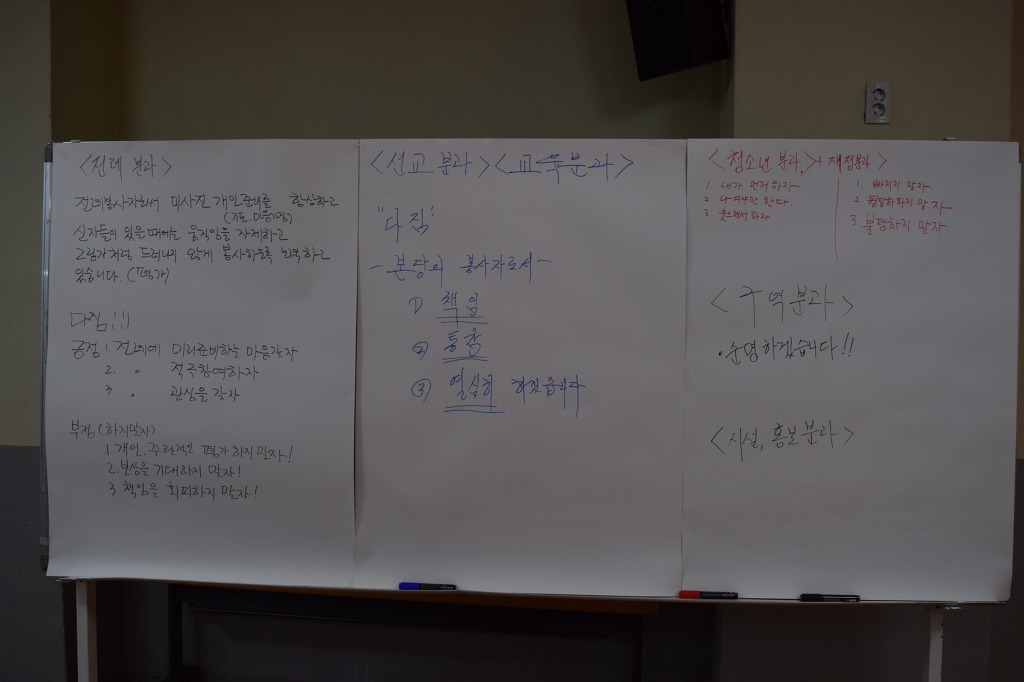 <전례 분과>
전례봉사자로써 미사전 개인준비를 항상하고
(기도, 마음가짐)
신자들이 있을때에는 움직임을 자제하고
그림자처럼 드러나지 않게 봉사하도록 노력하고
있습니다. (평가)
다짐!!!
긍정 1. 전례에 미리준비하는 마음갖자
2. 〃 적극참여하자
3. 〃 관심을 갖자
부정 (하지말자)
1. 개인, 주관적인 평가 하지말자!
2. 보상을 기대하지 말자!
3. 책임을 회피하지 말자!
<선교 분과> <교육분과>
"다짐"
- 본당의 봉사자로서 -
① 책임
②
③ 열심히 하겠습니다
<청소년 분과, + 재정분과>
1. 내가 먼저 하자
2. 나여야만 한다.
3. 웃으면서 하자
1. 빠지지 말자
2. 말자
3. 불평하지 말자.
<구역분과>
·순명하겠습니다!!
<시설, 홍보분과>